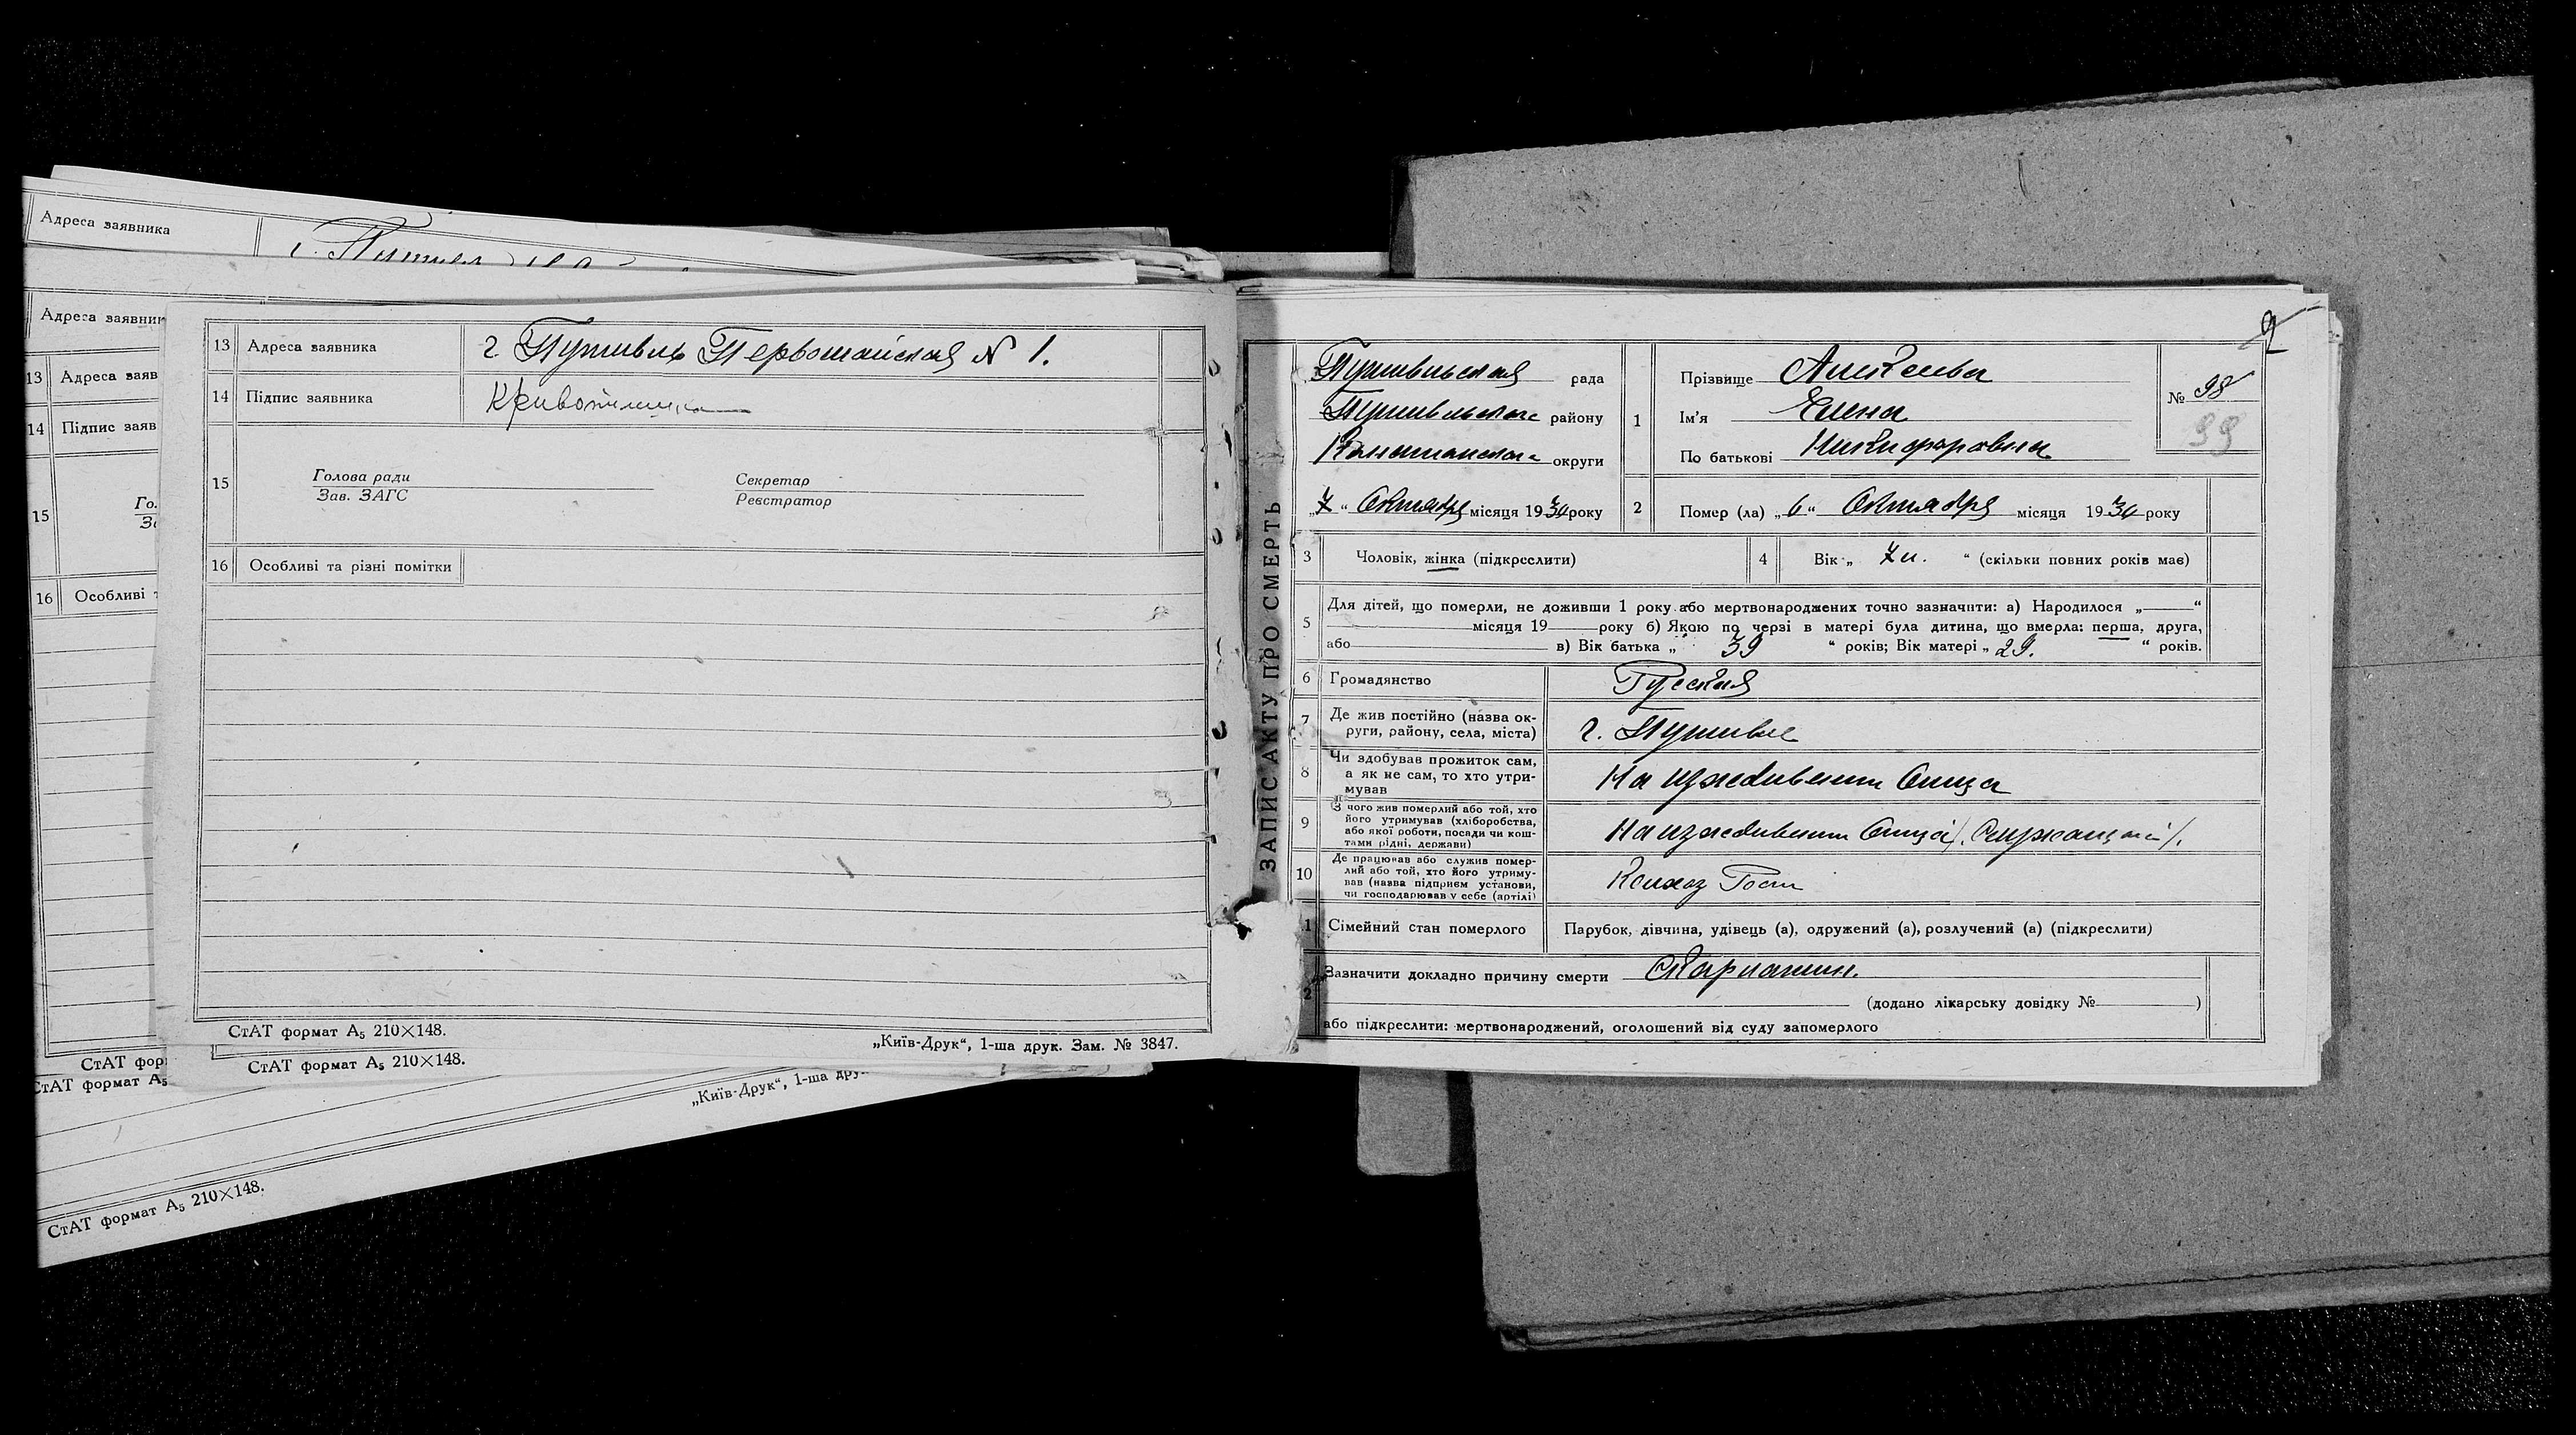 Адреса заявника
Адреса заявник
13 Адреса заяв
14 Підпис заяв
15
16 Особливі
13 Адреса заявника г Путивль Первомайская N 1.
14 Підпис заявника
15 Голова ради
Зав. ЗАГС
Секретар
Реєстратор
16 Особливі та різні помітки
СтАТ формат А5 210×148.
„Київ-Друк“, 1-ша друк. Зам. № 3847.
СтАТ фор
СтАТ формат А5 210×148.
СтАТ формат А5
„Київ-Друк“, 1-ша дру
СтАТ формат А5 210×148.
ЗАПИС АКТУ ПРО СМЕРТЬ
2
Путивльская рада
Путивльского району
Конотопского округи
„7“ Октября місяця 1930 року
1 Прізвище
Ім'я Елена
По батькові Никифоровна
№ 98
99
2 Помер (ла) „6“ Октября місяця 1930 року
3 Чоловік, жінка (підкреслити)
4 Вік „ 7 м. “ (скільки повних років має)
5 Для дітей, що померли, не доживши 1 року або мертвонароджених точно зазначити: а) Народилося „ “
місяця 19 року б) Якою по черзі в матері була дитина, що вмерла: перша, друга,
або в) Вік батька „ 39 “ років; Вік матері „ 29. “ років.
6 Громадянство Русская
7 Де жив постійно (назва ок-
руги, району, села, міста) г. Путивле
8 Чи здобував прожиток сам,
а як не сам, то хто утри-
мував На иждивении Отца
9 З чого жив померлий або той, хто
його утримував (хліборобства,
або якої роботи, посади чи кош-
тами рідні, держави) На иждивении Отца /. Служащий /.
10 Де працював або служив помер-
лий або той, хто його утриму-
вав (назва підприєм установи,
чи господарював у себе (артілі)
1 Сімейний стан померлого Парубок, дівчина, удівець (а), одружений (а), розлучений (а) (підкреслити)
2 Зазначити докладно причину смерти Скарлатин.
(додано лікарську довідку № )
або підкреслити: мертвонароджений, оголошений від суду запомерлого